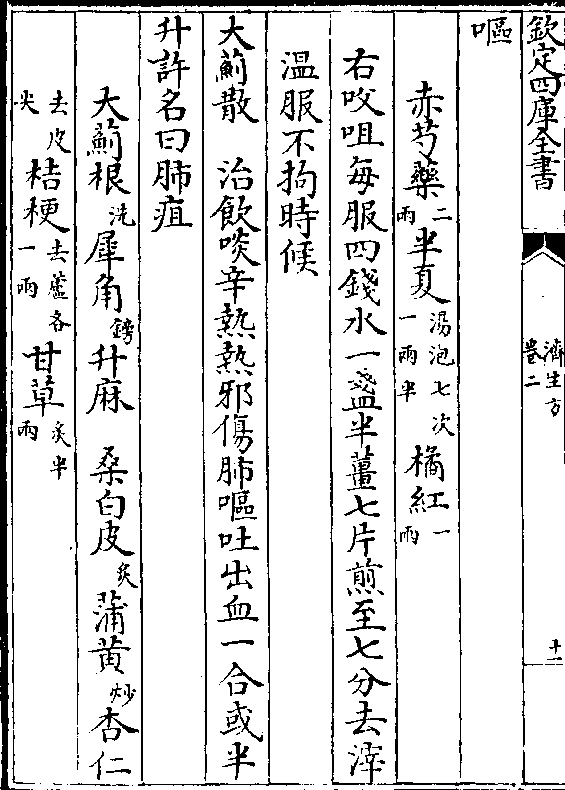 欽定四庫全書
濟生方
卷二
十一
嘔
赤芍藥二兩 半夏湯泡七次一兩半 橘紅一兩
右㕮咀每服四錢水一盞半薑七片煎至七分去滓
溫服不拘時候
大薊散 治飲啖辛熱熱邪傷肺嘔吐出血一合或半
升許名曰肺疽
大薊根洗 犀角鎊 升麻 桑白皮炙 蒲黄炒 杏仁
去皮尖 桔梗去蘆各一兩 甘草炙半兩